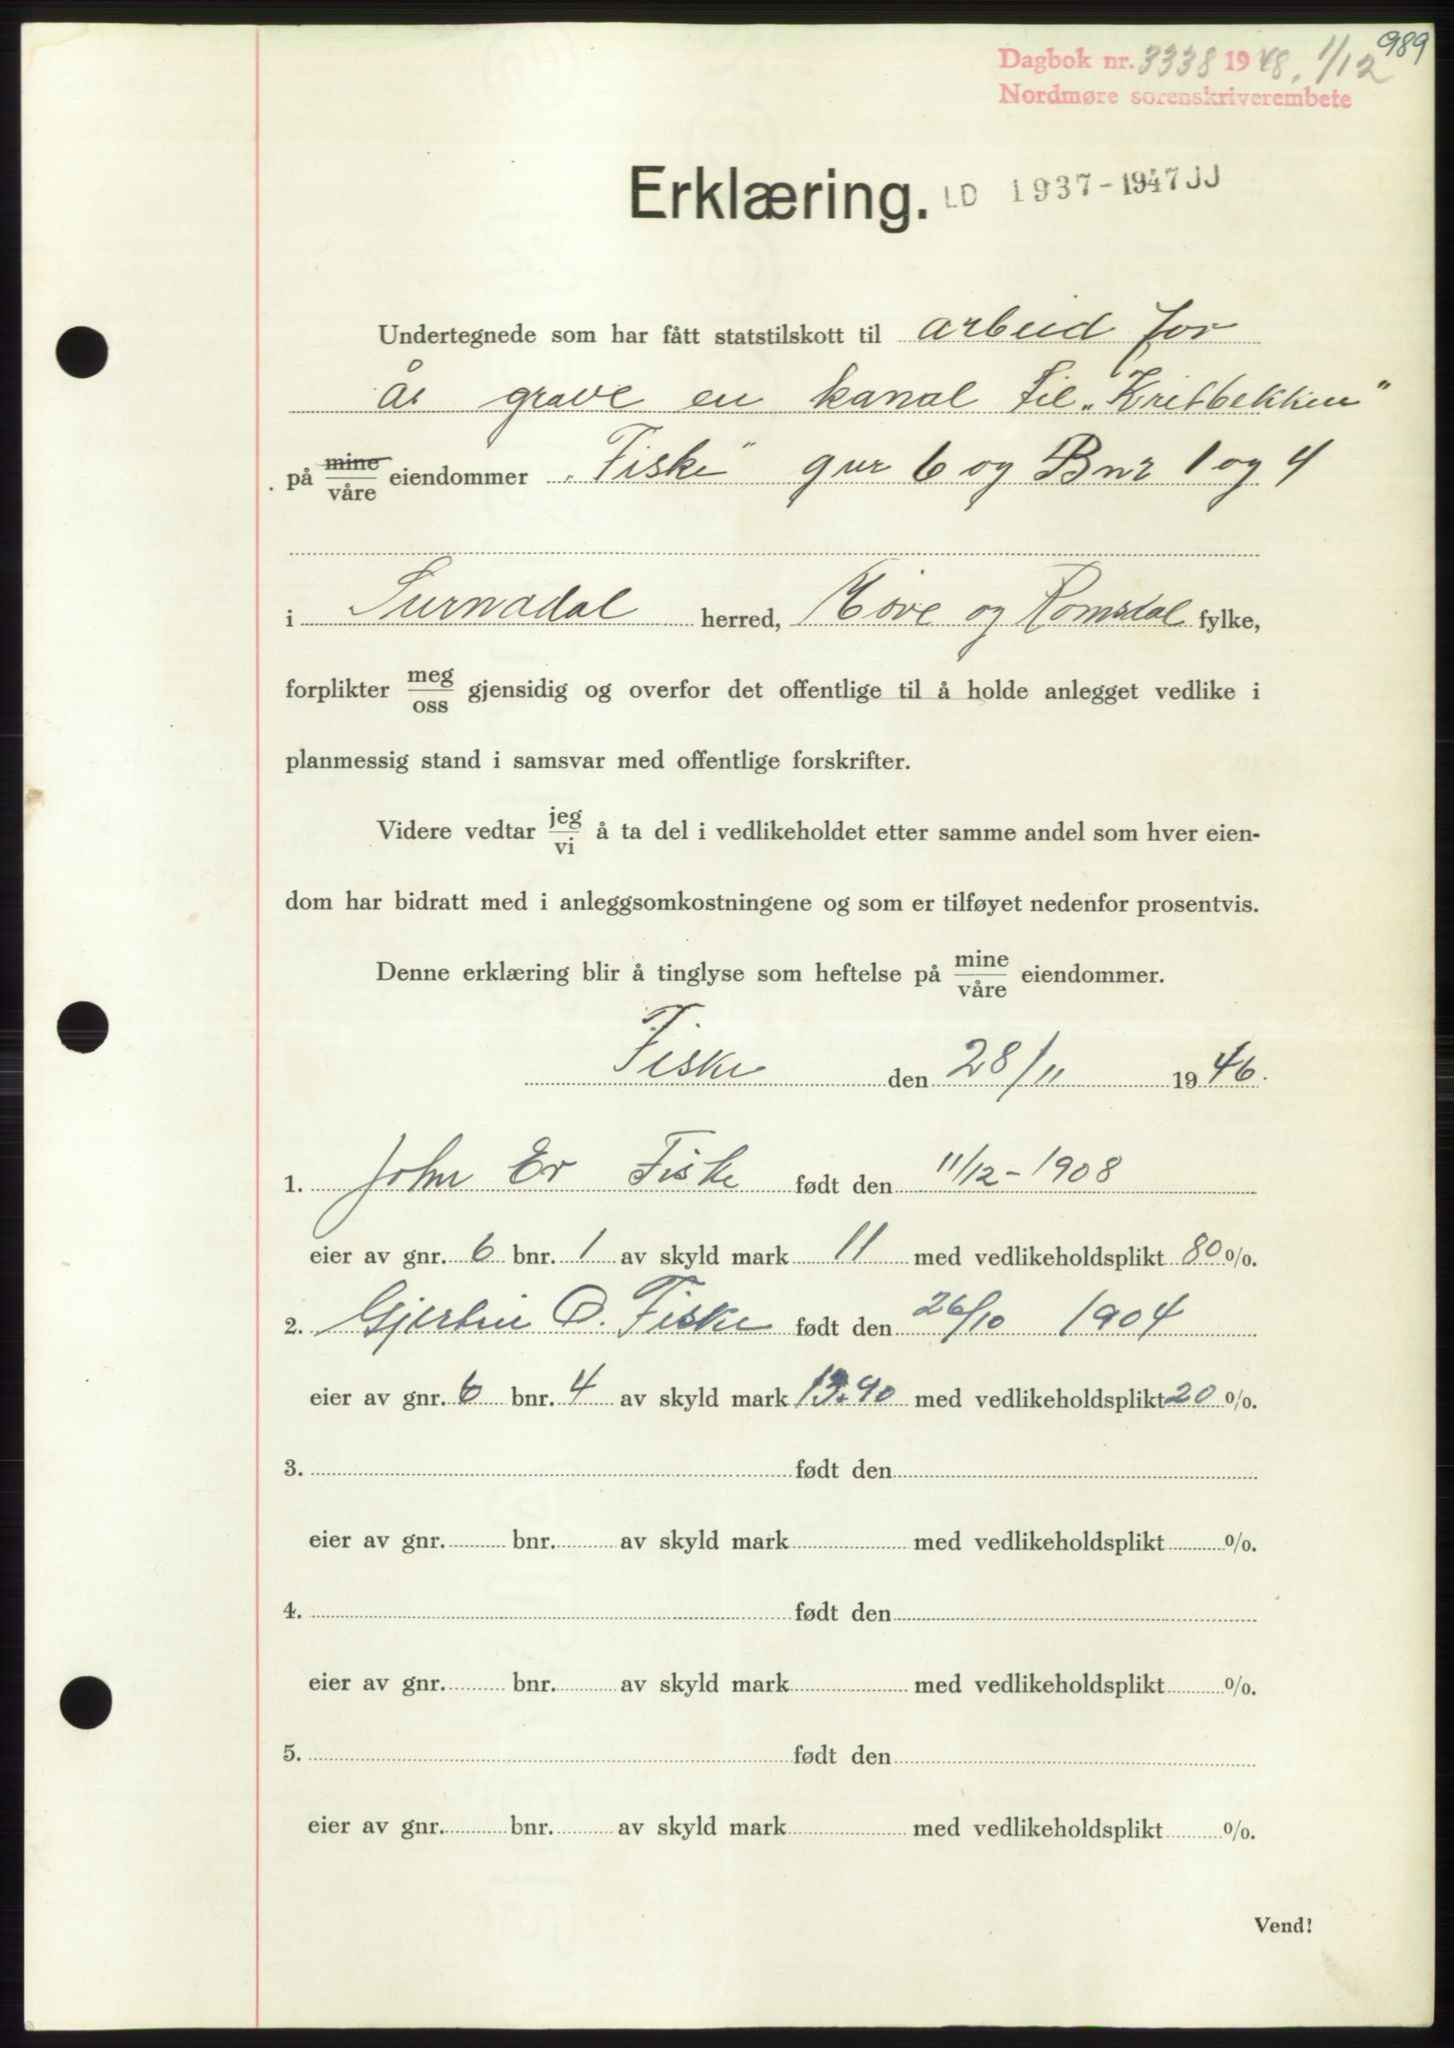 989
Dagbok nr. 3338 1948. 1/12
Nordmøre sorenskriverembete
Erklæring. LD 1937-1947 JJ
Undertegnede som har fått statstilskott til arbeid for
Å grave en kanal til „Kritbekken"
på mine/våre eiendommer „Fiske" gnr 6 og Bnr 1 og 4
i Surnadal herred, Møre og Romsdal fylke,
forplikter meg/oss gjensidig og overfor det offentlige til å holde anlegget vedlike i
planmessig stand i samsvar med offentlige forskrifter.
Videre vedtar jeg/vi å ta del i vedlikeholdet etter samme andel som hver eien-
dom har bidratt med i anleggsomkostningene og som er tilføyet nedenfor prosentvis.
Denne erklæring blir å tinglyse som heftelse på mine/våre eiendommer.
Fiske den 28/11 1946.
1. John Er Fiske født den 11/12-1908
eier av gnr. 6 bnr. 1 av skyld mark 11 med vedlikeholdsplikt 80 %.
2. Gjertine O. Fiske født den 26/10 1904
eier av gnr. 6 bnr. 4 av skyld mark 13.40 med vedlikeholdsplikt 20 %.
3. født den
eier av gnr. bnr. av skyld mark med vedlikeholdsplikt %.
4. født den
eier av gnr. bnr. av skyld mark med vedlikeholdsplikt %.
5. født den
eier av gnr. bnr. av skyld mark med vedlikeholdsplikt %.
Vend!